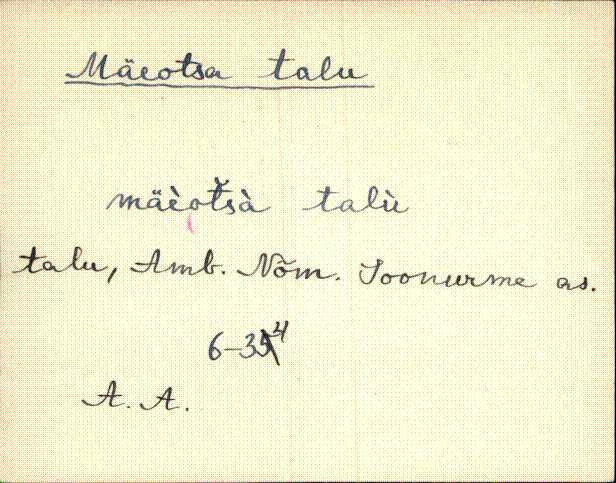 Mäeotsa talu
mäèot̆sà talù
talu, Amb. Nõm. Soonurme as.
6-34
A. A.